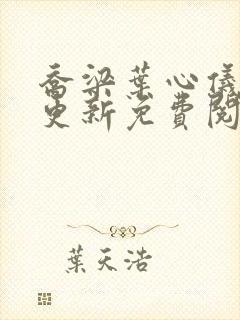 喬梁葉心儀
更新免費閱
葉天浩